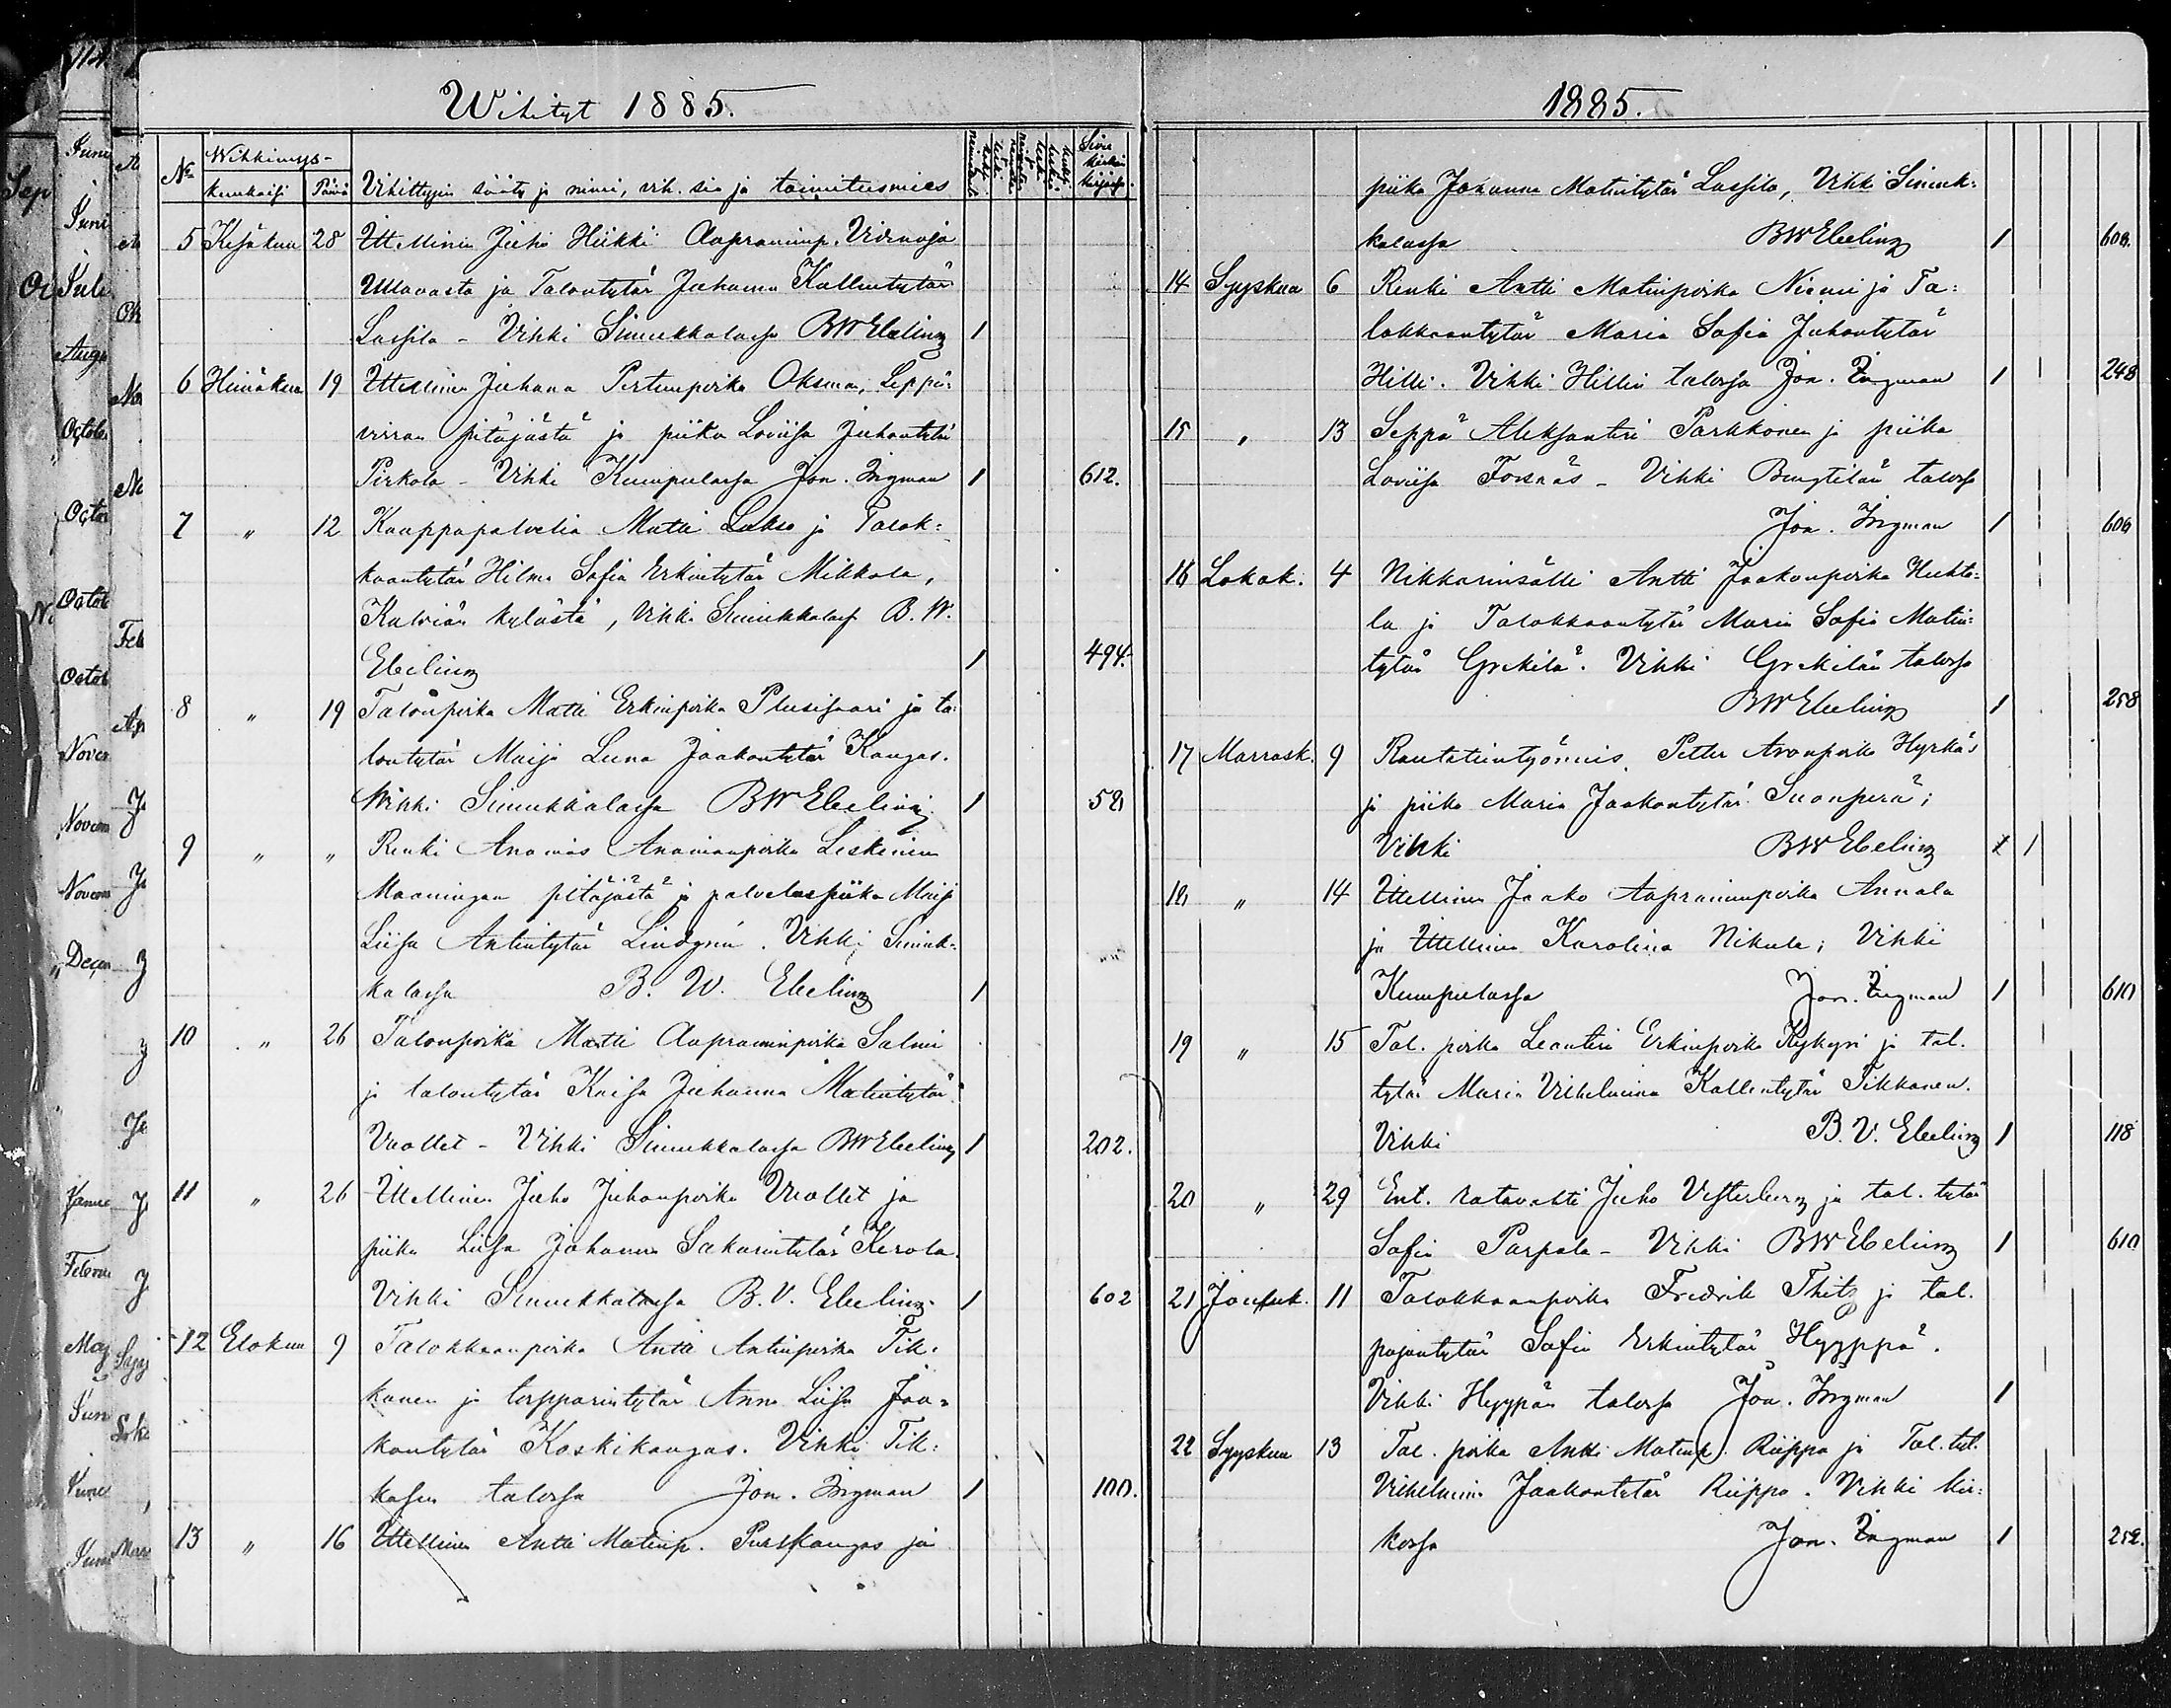 Wihityt 1885.
No
Wihkimys-
kuukausi
Päivä
Vihittyjen sääty ja nimi, vih. sia ja toimitusmies
Sivu kirkonkirjassa
5 Kesäkuu 28 Itellinen Juho Heikki Aapraminp. Virnoja
Ullavasta ja Talontytär Johanna Kallentytär
Lassila - Vihki Simukkalassa BW Ebeling 1
6 Heinäkuu 19 Itellinen Juhana Pertunpoika Oksman, Leppä-
virran pitäjästä ja piika Loviisa Juhontytär
Pirkola - Vihki Kumpulassa Jon. Ingman 1 612.
7 " 12 Kauppapalvelia Matti Lukso ja Talok-
kaantytär Hilma Sofia Erkintytär Mikkola,
Kälviän kylästä, Vihki Simukkalass B. W.
Ebeling 1 494.
8 " 19 Talonpoika Matti Erkinpoika Plusisaari ja ta-
lontytär Maija Leena Jaakontytär Kangas.
Wihki Simukkalassa BW Ebeling 1 58
9 " " Renki Ananias Ananianpoika Leskinen
Maaningan pitäjästä ja palveluspiika Maija
Liisa Antintytär Lindgrén. Vihki Simuk-
kalassa B. W. Ebeling 1
10 " 26 Talonpoika Matti Aapraminpoika Salmi
ja talontytär Kaisa Juhanna Matintytär
Vuollet - Vihki Simukkalassa BW Ebeling 1 202.
11 " 26 Itellinen Juho Juhonpoika Vuollet ja
piika Liisa Johanna Sakarintytär Kerola.
Vihki Simukkalassa B. V. Ebeling. 1 602
12 Elokuu 9 Talokkaanpoika Antti Antinpoika Tik-
kanen ja torpparintytär Anna Liisa Jaa-
kontytär Koskikangas. Vihki Tik-
kasen talossa Jon. Ingman 1 100.
13 " 16 Itellinen Antti Matinp. Purskangas ja
1885.
piika Johanna Matintytär Lassila, Vihki Simuk-
kalassa BW Ebeling 1 608.
14 Syyskuu 6 Renki Antti Matinpoika Niemi ja Ta-
lokkaantytär Maria Sofia Juhontytär
Hilli. Vihki Hillin talossa Jon. Ingman 1 248
15 " 13 Seppä Aleksanteri Parkkonen ja piika
Loviisa Forsnäs - Vihki Bengtilän talossa
Jon. Ingman 1 606
16 Lokak. 4 Nikkarinsälli Antti Jaakonpoika Huhta-
la ja Talokkaantytär Maria Sofia Matin-
tytär Grekilä. Vihki Grekilän talossa
BW Ebeling 1 258
17 Marrask. 9 Rautatientyömies Petter Aronpoika Hyrkäs
ja piika Maria Jaakontytär Suonperä;
Vihki BW Ebeling 1
18 " 14 Itellinen Jaako Aapraminpoika Annala
ja Itellinen Karolina Nikula; Vihki
Kumpulassa Jon. Ingman 1 610
19 " 15 Tal. poika Leanteri Erkinpoika Kykyri ja tal.
tytär Maria Vilhelmina Kallentytär Tikkanen.
Vihki B. V. Ebeling 1 118
20 " 29 Ent. ratavahti Juho Vesterberg ja tal. tytär
Sofia Parpala - Vihki BW Ebeling 1 610
21 Jouluk. 11 Talokkaanpoika Fredrik Thitz ja tal.
pojantytär Sofia Erkintytär Hyyppä.
Vihki Hyypän talossa Jon. Ingman 1
22 Syyskuu 13 Tal. poika Antti Matinp. Riippa ja Tal. tyt.
Vilhelmina Jaakontytär Riippa. Vihki kir-
kossa Jon. Ingman 1 252.